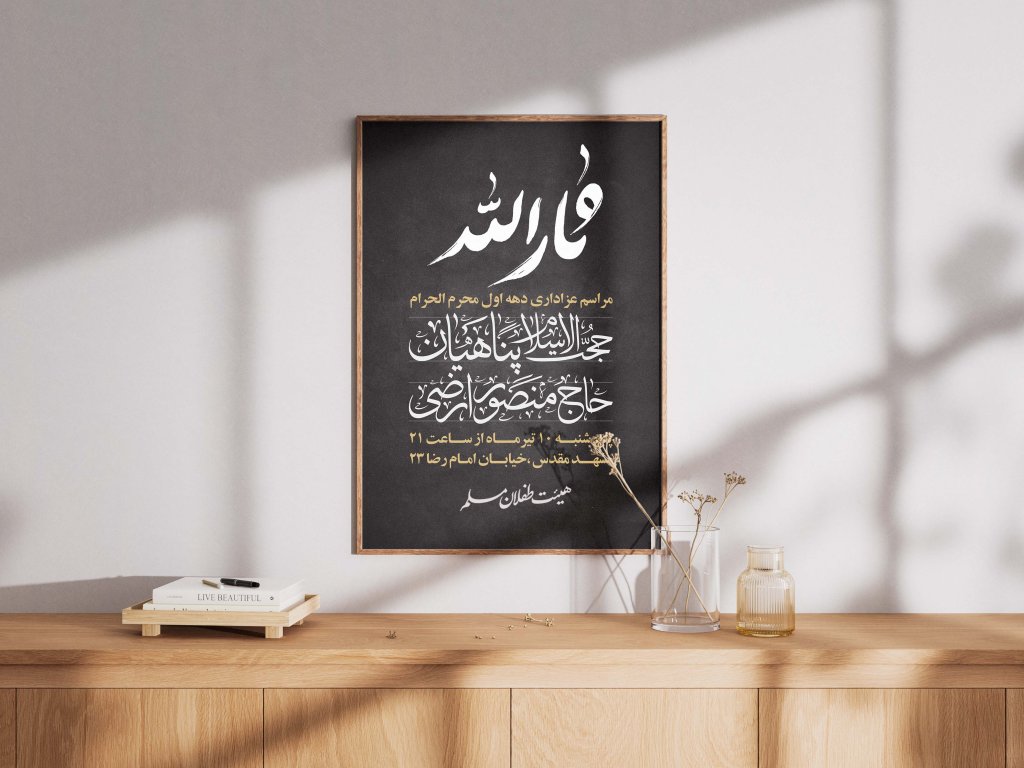 ثارالله
مراسم عزاداری دهه اول محرم الحرام
حجت الاسلام پناهیان
حاج منصور ارضی
۱۰ تیرماه از ساعت ۲۱
مشهد مقدس ،خیابان امام رضا ۲۳
هیئت طفلان مسلم
LIVE BEAUTIFUL